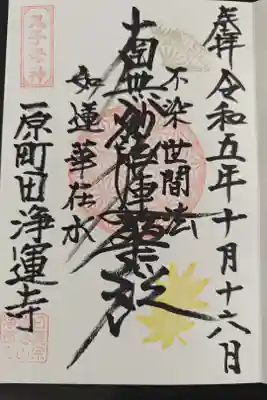 奉拝 令和五年十月十六日
不染世間法
南無妙法蓮華経
如蓮華在水
鬼子母神
原町田 浄運寺